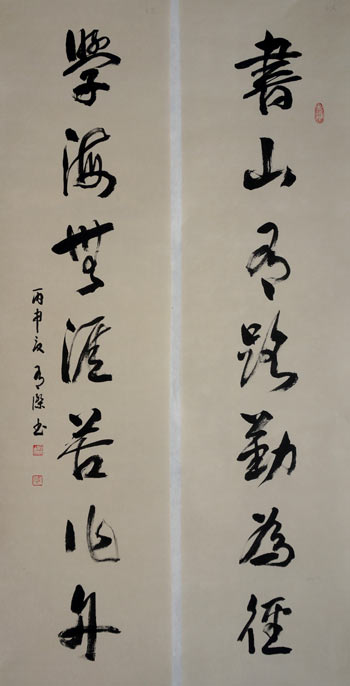 書山有路勤為徑
學海無涯苦作舟
丙申夏有傑书